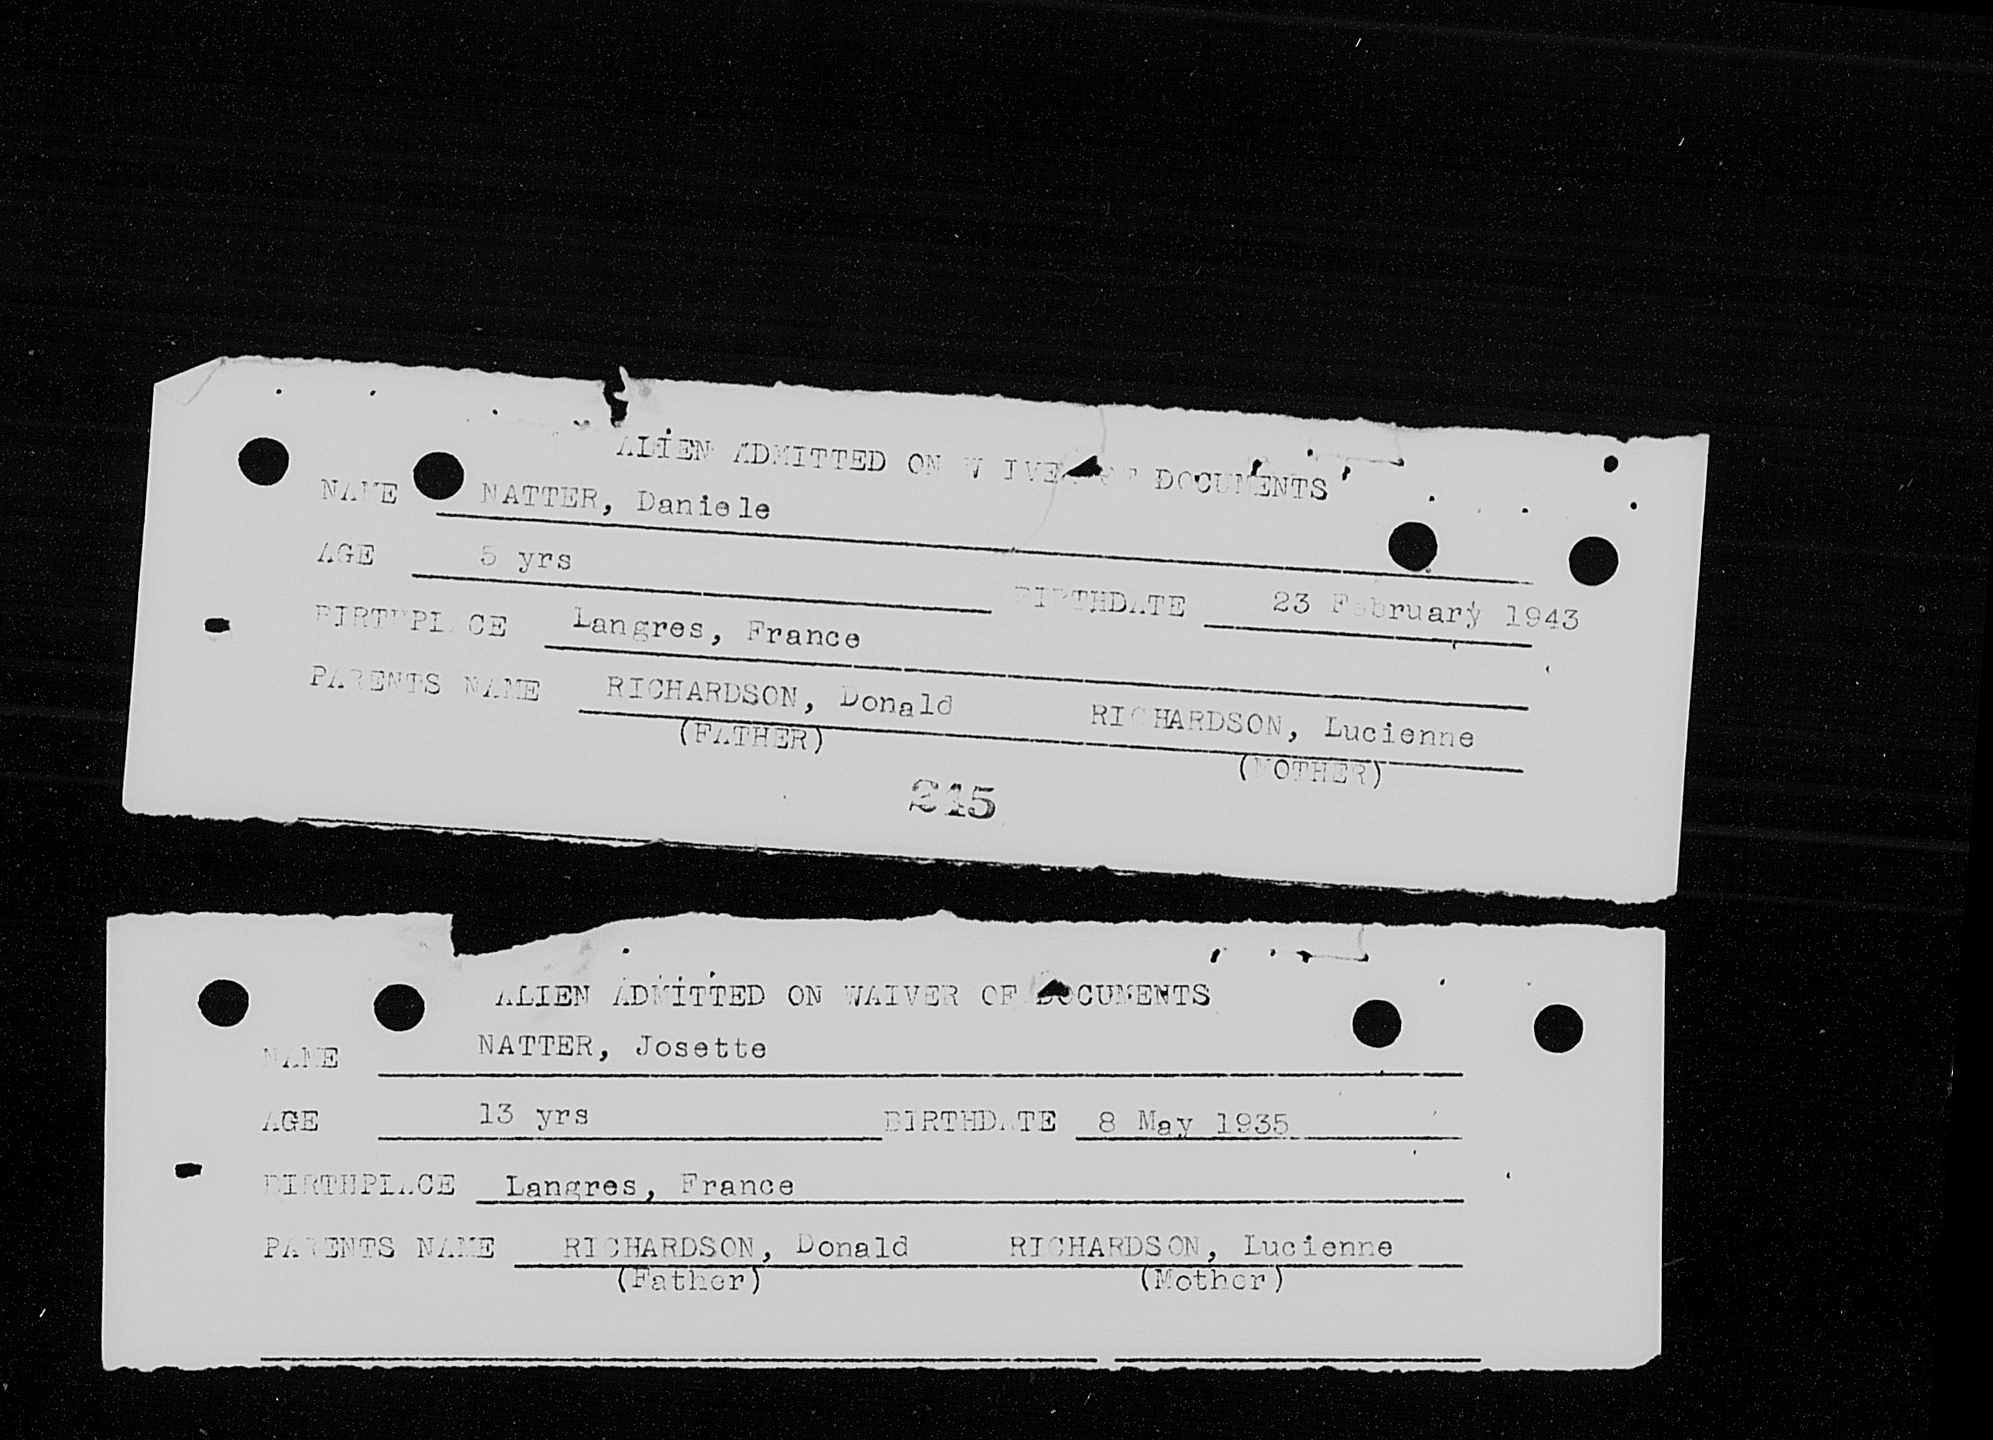 ALIEN ADMITTED ON WAIVER OF DOCUMENTS
NAME NATTER, Daniele
AGE 5 yrs BIRTHDATE 23 February 1943
BIRTHPLACE Langres, France
PARENTS NAME RICHARDSON, Donald RICHARDSON, Lucienne
(FATHER) (MOTHER)
245
ALIEN ADMITTED ON WAIVER OF DOCUMENTS
NAME NATTER, Josette
AGE 13 yrs BIRTHDATE 8 May 1935
BIRTHPLACE Langres, France
PARENTS NAME RICHARDSON, Donald RICHARDSON, Lucienne
(Father) (Mother)